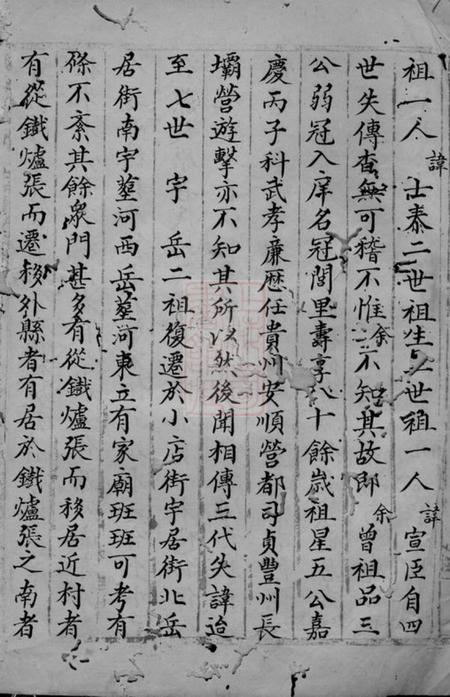 祖一人諱士泰二世祖生三世祖一人諱宣臣自四
世失傳杳無可稽不惟余不知其故即余曾祖品三
公弱冠入庠名冠閭里壽享八十餘歲祖星五公嘉
慶丙子科武孝廉歷任貴州安順營都司貞豐州長
壩營遊擊亦不知其所以然後聞相傳三代失諱迨
至七世宇岳二祖復遷於小店街宇居街北岳
居街南宇塋河西岳塋河東立有家廟班班可考有
條不紊其餘衆門甚多有從鐵爐張而移居近村者
有從鐵爐張而遷移外縣者有居於鐵爐張之南者